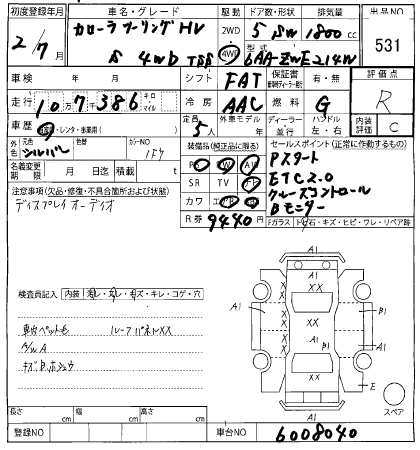 初度登録年月 車名・グレード 駆動 ドア数・形状 排気量 出品NO
2/7月 カローラツーリング HV 2WD 5 SW 1800 cc 531
S 4WD TSS 4WD 型式 6AA-ZWE214W
車検 年 月 シフト FAT 保証書 有・無 評価点
走行 107386 キロ マイル 冷房 AAC 燃料 G R
車歴 自家用・レンタ・事業用( ) 定員 5人 外車モデル 年 ディーラー 並行 ハンドル 左・右 内装 C
外色 元色 シルバー 色替 カラーNO 装備品(純正品に限る) セールスポイント(正常に作動するもの)
名義変更期限 月 日迄 積載 t P PW AW Pスタート
注意事項(欠品・修復・不具合箇所および状態) SR TV ナビ ETC2.0
ディスプレイオーディオ カワ エアB クルーズコントロール
R券 9440円 Bモニター
Fガラス
検査員記入 内装
車内ペットも ルーフパネルXX
A/W A
キズ
A1
A1 XX B1
A1 XX A1
XX E
A1 スペア
長さ cm 幅 cm 高さ cm
登録NO 車台NO 6008040